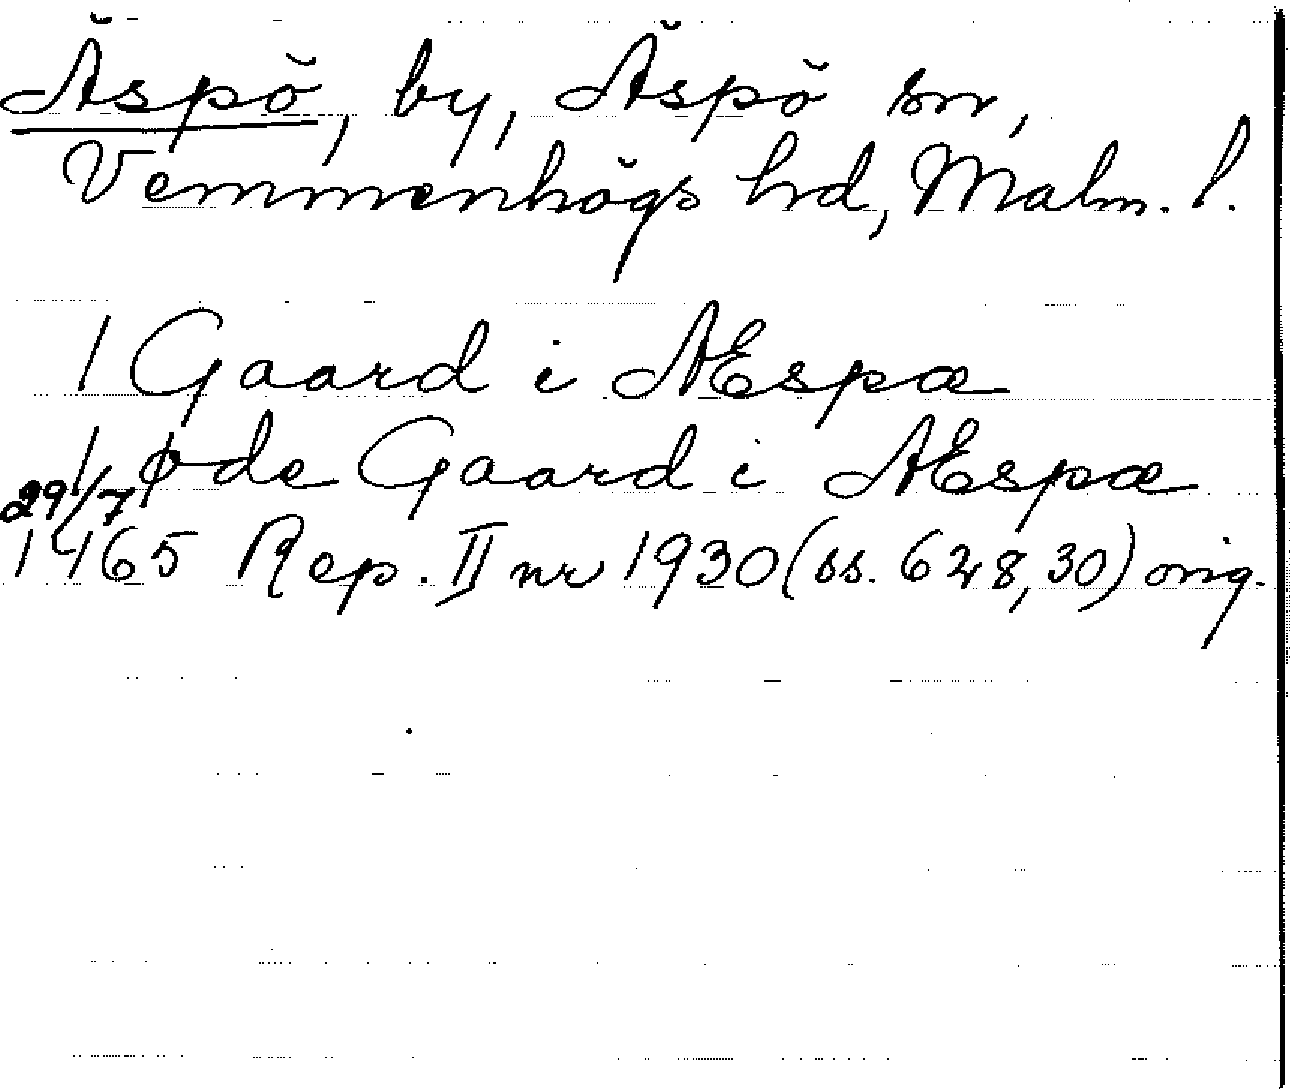 Äspö, by, Äspö sn,
Vemmenhögs hd, Malm. l.
1 Gaard i AEspæ
1 øde Gaard i AEspæ
29/7
1465 Rep. II nr 1930 (ss. 628,30) orig.